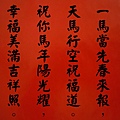 一馬當先春來報
天馬行空祝福道
祝你馬年陽光耀
幸福美滿吉祥照